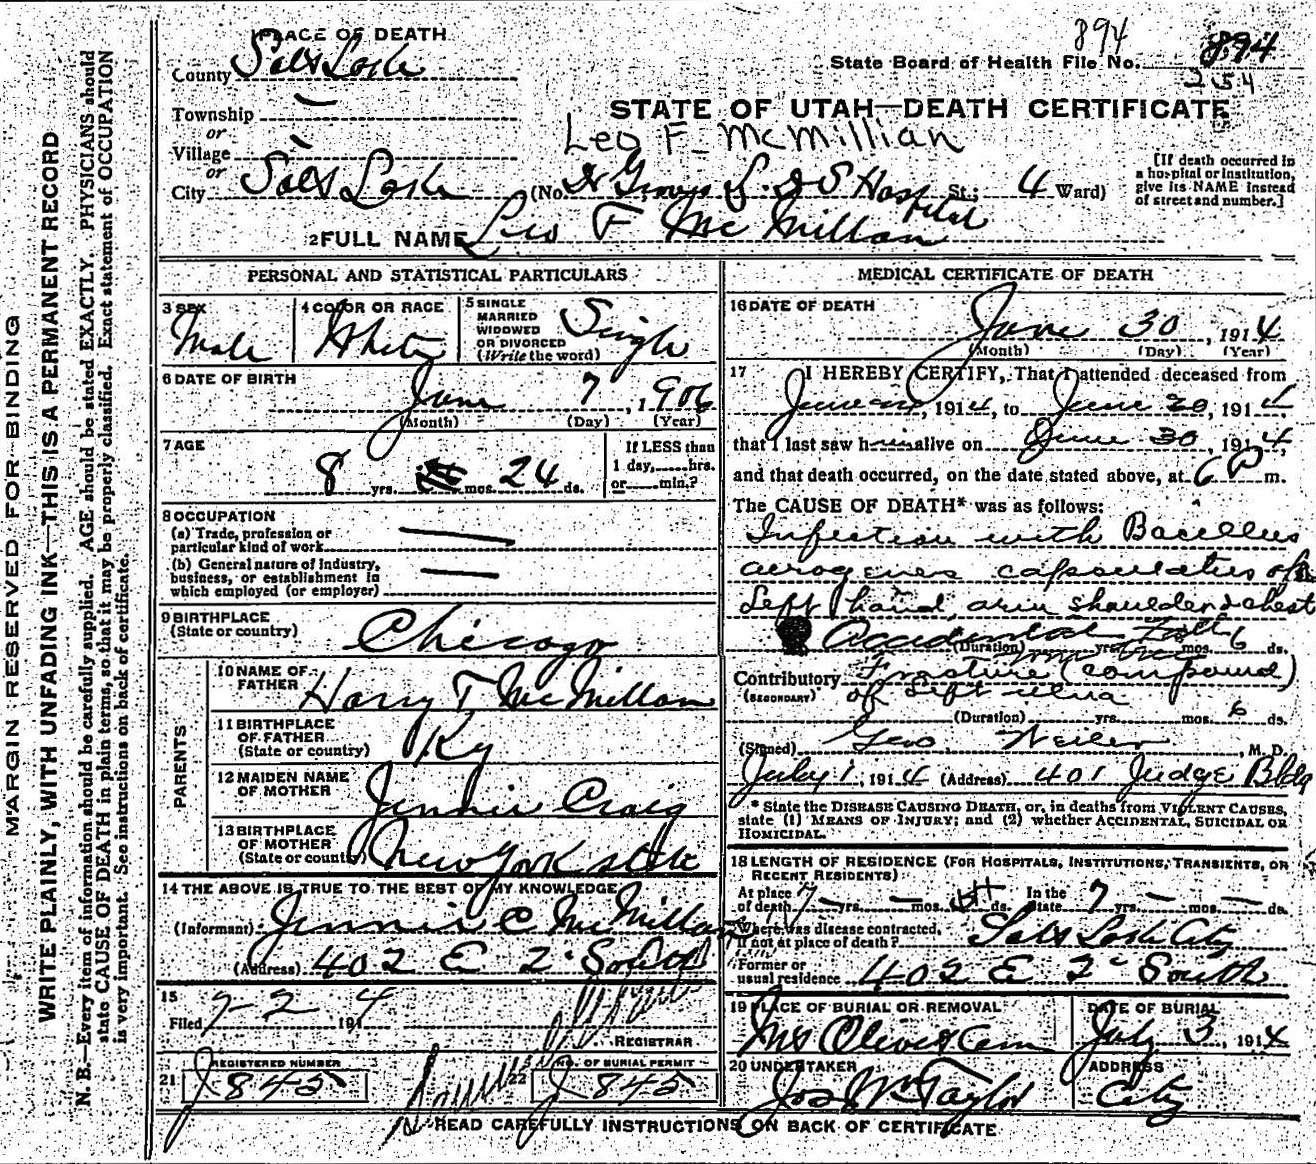 MARGIN RESERVED FOR BINDING
WRITE PLAINLY, WITH UNFADING INK—THIS IS A PERMANENT RECORD
N. B.—Every item of information should be carefully supplied. AGE should be stated EXACTLY. PHYSICIANS should
state CAUSE OF DEATH in plain terms, so that it may be properly classified. Exact statement of OCCUPATION
is very important. See instructions on back of certificate.
PLACE OF DEATH
County Salt Lake
Township
or
Village
or
City Salt Lake
894
State Board of Health File No. 894
254
STATE OF UTAH—DEATH CERTIFICATE
Leo F. McMillian
(No. L. D S Hospital St.; 4 Ward)
[If death occurred in
a hospital or institution,
give its NAME instead
of street and number.]
2 FULL NAME Leo F McMillan
PERSONAL AND STATISTICAL PARTICULARS
3 SEX
Male
4 COLOR OR RACE
White
5 SINGLE
MARRIED
WIDOWED
OR DIVORCED
(Write the word)
Single
6 DATE OF BIRTH
June 7, 1906
(Month) (Day) (Year)
7 AGE
8 yrs. mos. 24 ds.
If LESS than
1 day, hrs.
or min.?
8 OCCUPATION
(a) Trade, profession or
particular kind of work
(b) General nature of industry,
business, or establishment in
which employed (or employer)
9 BIRTHPLACE
(State or country)
Chicago
PARENTS
10 NAME OF
FATHER
Harry T McMillan
11 BIRTHPLACE
OF FATHER
(State or country)
Ky
12 MAIDEN NAME
OF MOTHER
Jennie Craig
13 BIRTHPLACE
OF MOTHER
(State or country)
New York state
14 THE ABOVE IS TRUE TO THE BEST OF MY KNOWLEDGE
(Informant) Jennie C McMillan
(Address) 402 E 2 South
15
Filed 7-2 1914
REGISTRAR
REGISTERED NUMBER
21 J 845
NO. OF BURIAL PERMIT
22 J 845
MEDICAL CERTIFICATE OF DEATH
16 DATE OF DEATH
June 30, 1914
(Month) (Day) (Year)
17 I HEREBY CERTIFY, That I attended deceased from
June, 1914, to June 30, 1914,
that I last saw him alive on June 30, 1914,
and that death occurred, on the date stated above, at 6 P m.
The CAUSE OF DEATH* was as follows:
Infection with Bacillus
aerogenes capsulatus of
Left hand, arm shoulder & chest
Accidental Fall
(Duration) yrs. mos. 6 ds.
Contributory Fracture (compound)
(SECONDARY) of Left ulna
(Duration) yrs. mos. 6 ds.
(Signed) Geo, M. D.
July 1, 1914 (Address) 401 Judge Bldg
* State the DISEASE CAUSING DEATH, or, in deaths from VIOLENT CAUSES,
state (1) MEANS OF INJURY; and (2) whether ACCIDENTAL, SUICIDAL OR
HOMICIDAL.
18 LENGTH OF RESIDENCE (FOR HOSPITALS, INSTITUTIONS, TRANSIENTS, OR
RECENT RESIDENTS)
At place
of death 7 yrs. mos. ds. In the
State 7 yrs. mos. ds.
Where was disease contracted,
if not at place of death? Salt Lake City
Former or
usual residence 402 E 2 South
19 PLACE OF BURIAL OR REMOVAL
Mt Olivet Cem
DATE OF BURIAL
July 3, 1914
20 UNDERTAKER
Jos Wm Taylor
ADDRESS
City
READ CAREFULLY INSTRUCTIONS ON BACK OF CERTIFICATE